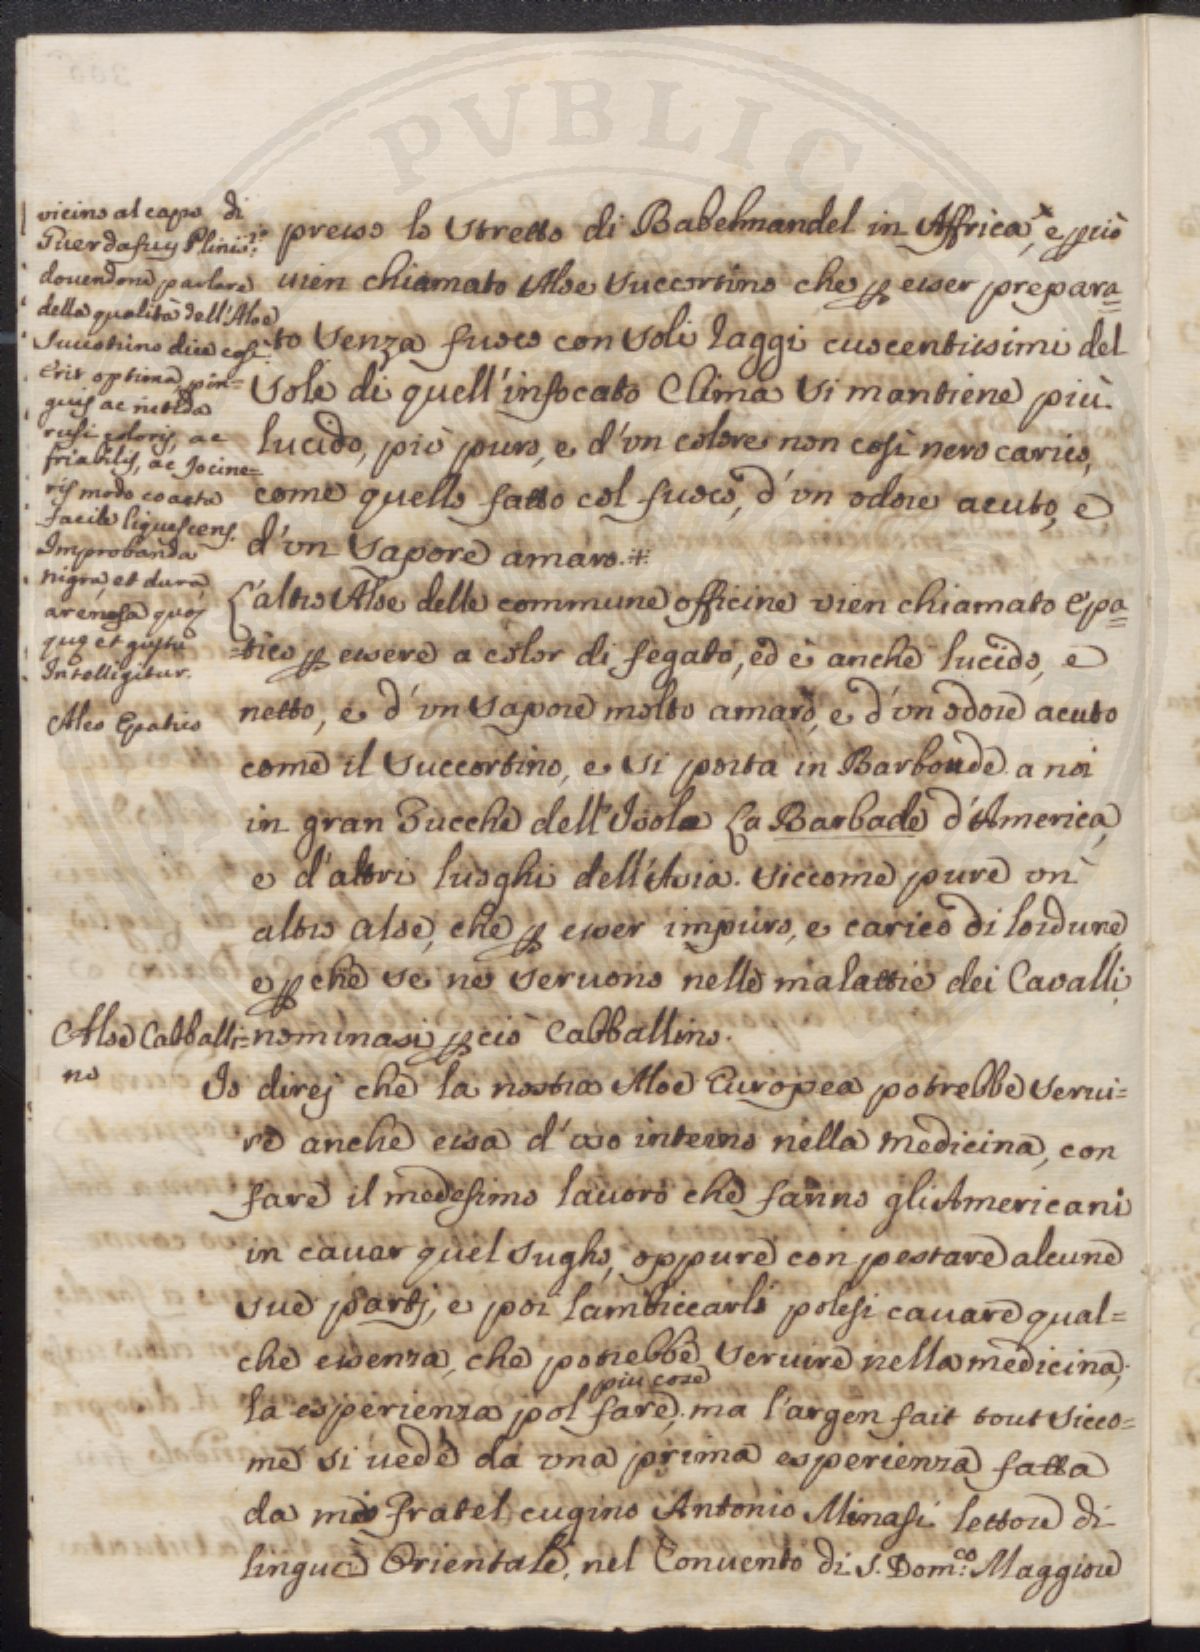 vicino al capo di
Guerdafuy Plinio
dovendone parlare
della qualità dell'Aloe
Succotrino dice così
Erit optima pin=
guis ac nitida
rufi coloris, ac
friabilis, ac Jocine=
ris modo coacta
facile liquescens.
Improbanda
nigra, et dura,
arenosa quoq
que et gustu
Intelligitur.
Aloe Epatico
Aloe Cabballi=
no
presso lo Stretto di Babelmandel in Affrica, e più
vien chiamato Aloe Succortino che p esser prepara=
to senza fuoco con soli raggi cuocentissimi del
Sole di quell'infocato Clima si mantiene più
lucido, più puro, e d'un colore non così nero carico,
come quello fatto col fuoco, d'un odore acuto, e
d'un sapore amaro.+
L'altro Aloe delle commune officine vien chiamato Epa=
=tico p essere a color di fegato, ed è anche lucido, e
netto, e d'un sapore molto amaro, e d'un odore acuto
come il Succortino, e si porta in Barboude a noi
in gran Zucche dell'Isola La Barbade d'America,
e d'altri luoghi dell'Asia. Siccome pure un
altro aloe, che p esser impuro, e carico di lordure
e pche se ne servono nelle malattie dei Cavalli,
nominasi pciò Cabballino.
Io direj che la nostra Aloe Europea potrebbe servi=
re anche essa d'uso interno nella medicina, con
fare il medesimo lavoro che fanno gli Americani
in cavar quel sugho, oppure con pestare alcune
sue partj, e poi lambiccarli polesi cavare qual=
che essenza, che potrebbe servire nella medicina;
più cose
la esperienza pol fare, ma l'argen fait tout sicco=
me si vede da una prima esperienza fatta
da mio Fratel cugino Antonio Minasi lettore di
lingue Orientale, nel Convento di S. Dom.co Maggiore